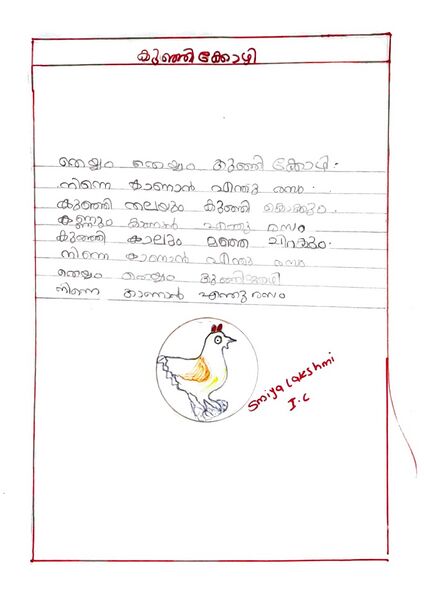 കുഞ്ഞിക്കോഴി
തെയ്യം തെയ്യം കുഞ്ഞി ക്കോഴി.
നിന്നെ കാണാൻ എന്തു രസം.
കുഞ്ഞി തലയും കുഞ്ഞി കൊക്കും.
കണ്ണും കാണാൻ എന്തു രസം.
കുഞ്ഞി കാലും മഞ്ഞ ചിറകും.
നിന്നെ കാണാൻ എന്തു രസം
തെയ്യം തെയ്യം കുഞ്ഞിക്കോഴി
നിന്നെ കാണാൻ എന്തു രസം
Smiya Lakshmi
I.C